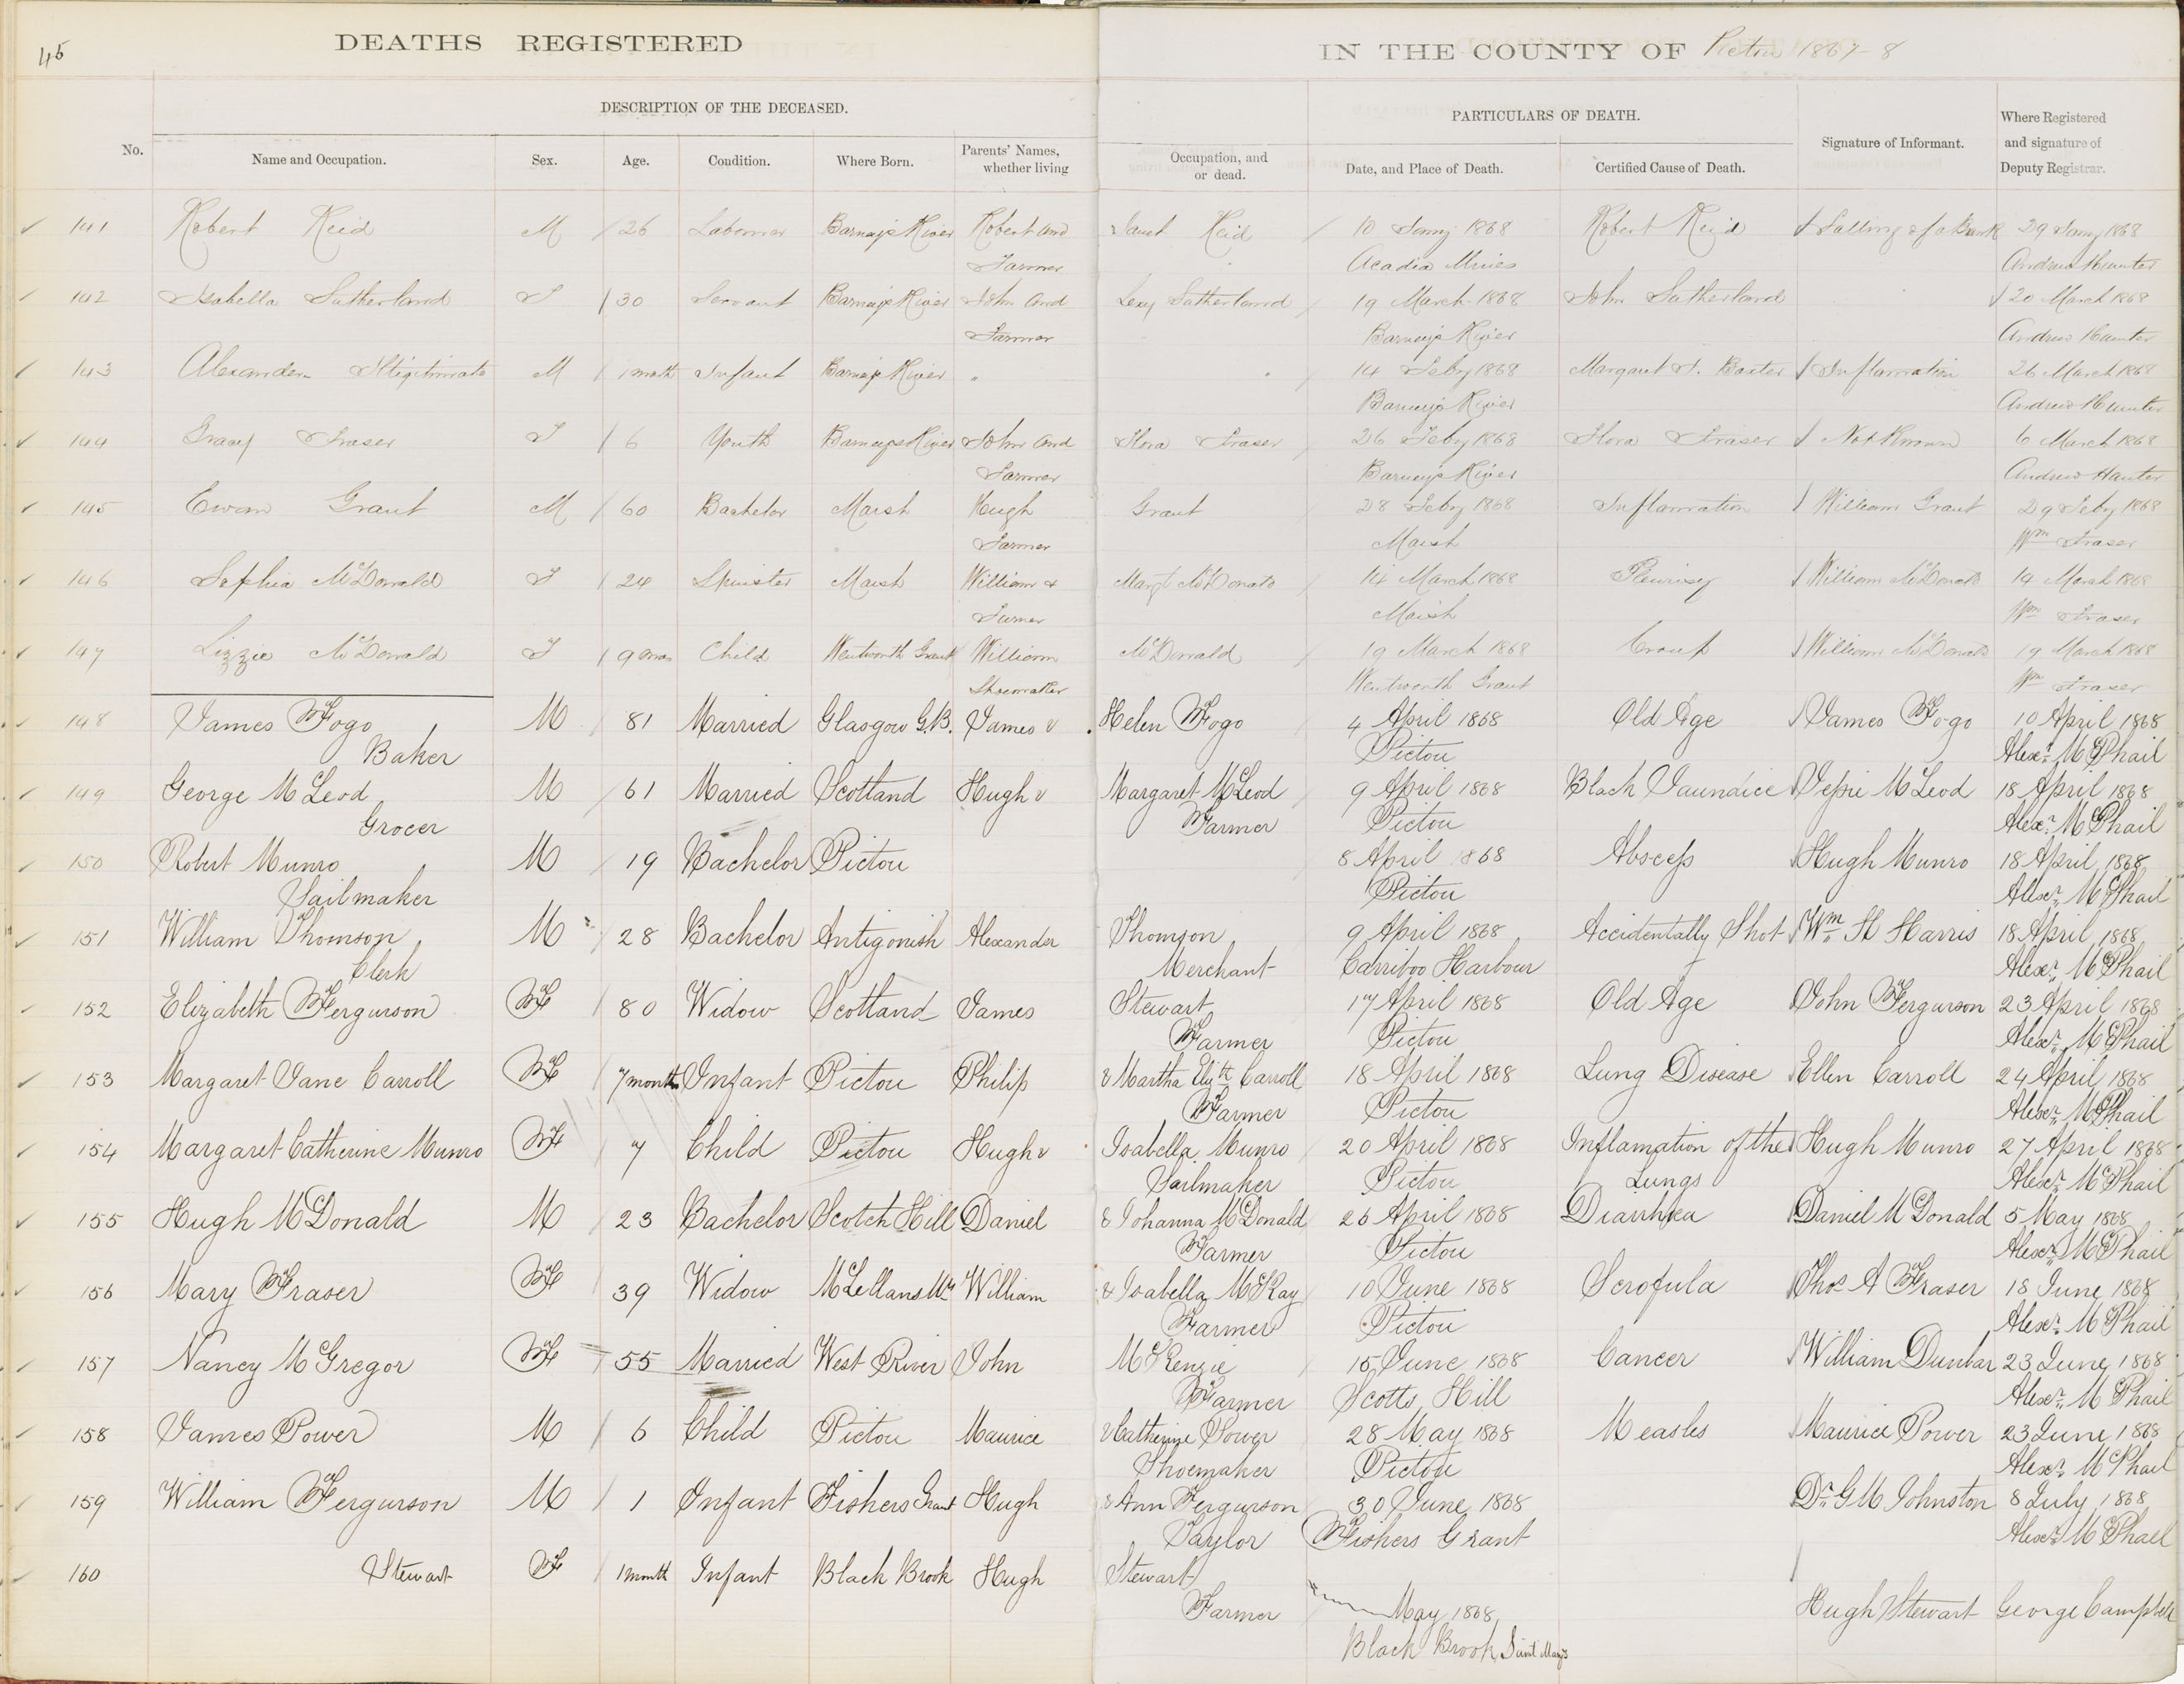 45
DEATHS REGISTERED IN THE COUNTY OF Pictou 1867-8
DESCRIPTION OF THE DECEASED. PARTICULARS OF DEATH.
No. Name and Occupation. Sex. Age. Condition. Where Born. Parents' Names, whether living Occupation, and or dead. Date, and Place of Death. Certified Cause of Death. Signature of Informant. Where Registered and signature of Deputy Registrar.
141 Robert Reid M 26 Laborer Barneys River Robert and Reid 10 Jany 1868 Robert Reid Falling of a Bank 29 Jany 1868
Farmer Acadia Mines Andrew Hunter
142 Isabella Sutherland F 30 Servant Barneys River John and Lexy Sutherland 19 March 1868 John Sutherland 20 March 1868
Farmer Barneys River Andrew Hunter
143 Alexander Illigitimate M 1 month Infant Barneys River " 14 Feby 1868 Margaret Baxter Inflamation 26 March 1868
Barneys River Andrew Hunter
144 Gracy Fraser F 6 Youth Barneys River John and Flora Fraser 26 Feby 1868 Flora Fraser Not Known 6 March 1868
Farmer Barneys River Andrew Hunter
145 Ewen Grant M 60 Bachelor Marsh Hugh Grant 28 Feby 1868 Inflamation William Grant 29 Feby 1868
Farmer Marsh Wm Fraser
146 Sophia McDonald F 24 Spinster Marsh William & Margt McDonald 14 March 1868 Pleurisy William McDonald 14 March 1868
Farmer Marsh Wm Fraser
147 Lizzie McDonald F 9 mos Child Wentworth Grant William McDonald 19 March 1868 Croup William McDonald 19 March 1868
Shoemaker Wentworth Grant Wm Fraser
148 James Fogo M 81 Married Glasgow G.B. James & Helen Fogo 4 April 1868 Old Age James Fogo 10 April 1868
Baker Pictou Alexr McPhail
149 George McLeod M 61 Married Scotland Hugh & Margaret McLeod 9 April 1868 Black Jaundice Jessie McLeod 18 April 1868
Grocer Farmer Pictou Alexr McPhail
150 Robert Munro M 19 Bachelor Pictou 8 April 1868 Abscess Hugh Munro 18 April 1868
Sailmaker Pictou Alexr McPhail
151 William Thomson M 28 Bachelor Antigonish Alexander Thomson 9 April 1868 Accidentally Shot Wm H Harris 18 April 1868
Clerk Merchant Carriboo Harbour Alexr McPhail
152 Elizabeth Fergurson F 80 Widow Scotland James Stewart 17 April 1868 Old Age John Fergurson 23 April 1868
Farmer Pictou Alexr McPhail
153 Margaret Jane Carroll F 7 months Infant Pictou Philip & Martha Elizth Carroll 18 April 1868 Lung Disease Ellen Carroll 24 April 1868
Farmer Pictou Alexr McPhail
154 Margaret Catherine Munro F 7 Child Pictou Hugh & Isabella Munro 20 April 1868 Inflamation of the Hugh Munro 27 April 1868
Sailmaker Pictou Lungs Alexr McPhail
155 Hugh McDonald M 23 Bachelor Scotch Hill Daniel & Johanna McDonald 26 April 1868 Diarrhea Daniel McDonald 5 May 1868
Farmer Pictou Alexr McPhail
156 Mary Fraser F 39 Widow McLellans Mn William & Isabella McKay 10 June 1868 Scrofula Thos A Fraser 18 June 1868
Farmer Pictou Alexr McPhail
157 Nancy McGregor F 55 Married West River John McKenzie 15 June 1868 Cancer William Dunbar 23 June 1868
Farmer Scotts Hill Alexr McPhail
158 James Power M 6 Child Pictou Maurice & Catherine Power 28 May 1868 Measles Maurice Power 23 June 1868
Shoemaker Pictou Alexr McPhail
159 William Fergurson M 1 Infant Fishers Grant Hugh & Ann Fergurson 30 June 1868 Dr G M Johnston 8 July 1868
Taylor Fishers Grant Alexr McPhail
160 Stewart F 1 month Infant Black Brook Hugh Stewart
Farmer May 1868 Hugh Stewart George Campbell
Black Brook, Saint Marys